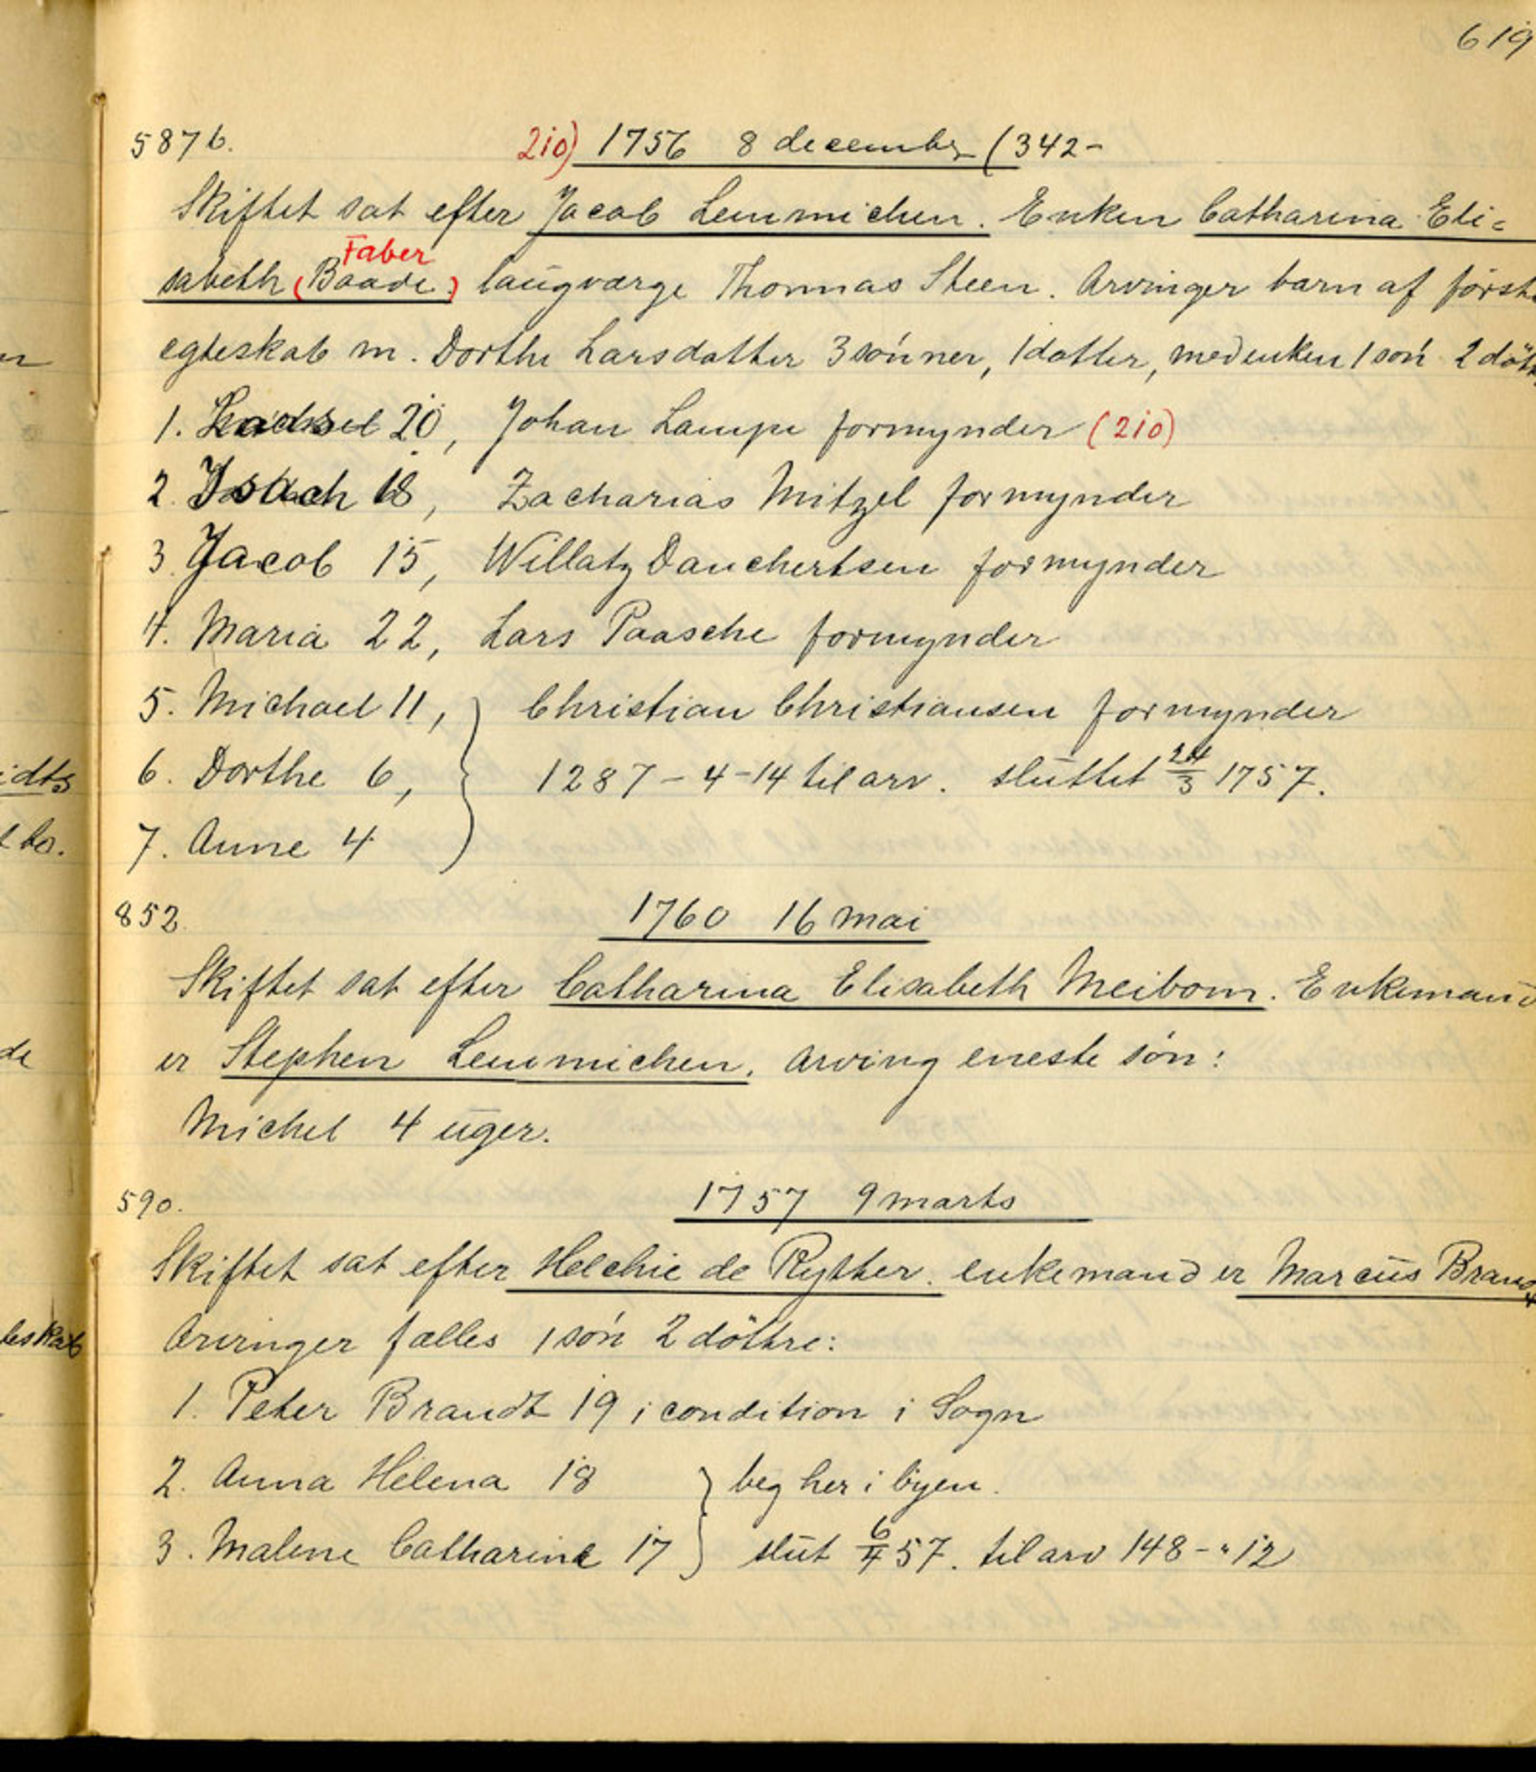 619
587b. 2io) 1756 8 december (342-
Skiftet sat efter Jacob Lemmichen. Enken Catharina Eli=
Faber
sabeth (Baade) laugværge Thomas Steen. Arvinger barn af første
egteskab m. Dorthe Larsdatter 3 sønner, 1 datter, med enken 1 søn 2 døt
1. 20, Johan Lampe formynder (2io)
2. Isach 18, Zacharias Mitzel formynder
3. Jacob 15, Willatz Danchertsen formynder
4. Maria 22, Lars Paasche formynder
5. Michael 11, Christian Christiansen formynder
6. Dorthe 6, 1287-4-14 til arv. sluttet 24/3 1757.
7. Anne 4
852. 1760 16 mai
Skiftet sat efter Catharina Elisabeth Meibom. Enkemand
er Stephen Lemmichen. Arving eneste søn:
Michel 4 uger.
590. 1757 9 marts
Skiftet sat efter Helchie de Rytter. enkemand er Marcus Brandt
Arvinger fælles 1 søn 2 døttre:
1. Peter Brandt 19 i condition i Sogn
2. Anna Helena 18 beg her i byen.
3. Malene Catharine 17 slut 6/4 57. til arv 148-"12
idts
de